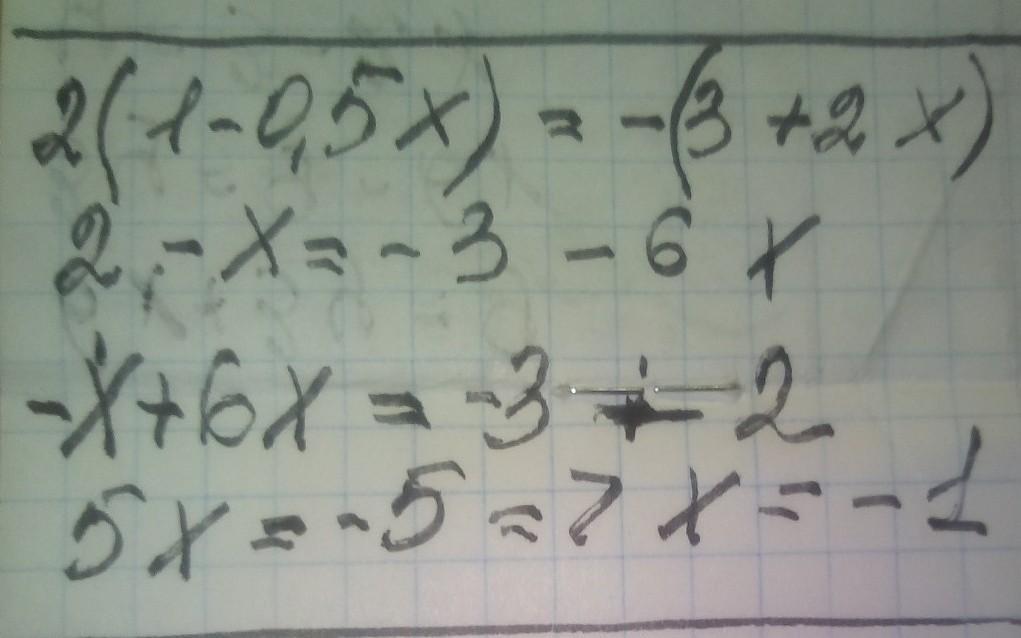 2(1-0,5x) = -(3+2x)
2-x=-3-6x
-x+6x=-3-2
5x=-5=>x=-1